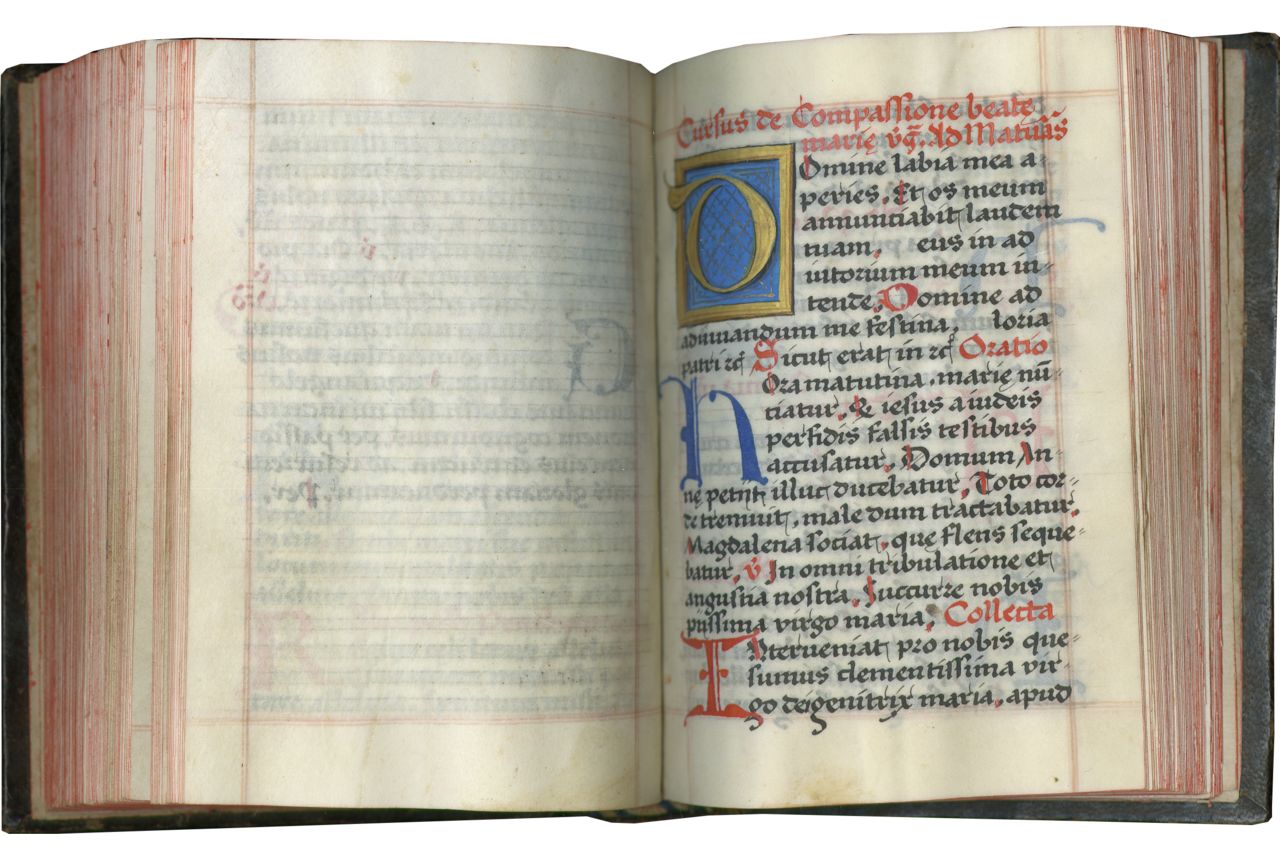 Cursus de Compassione beate
marię vg̃. Ad Matutis
Domine labia mea a-
peries, Et os meum
annunciabit laudem
tuam, eus in ad
iutorium meum in-
tende, Domine ad
adiuuandum me festina, loria
patri zc̃ Sicut erat in zc̃ Oratio
Hora matutina, marię nũ-
tiatur, & iesus a iudeis
perfidis falsis testibus
accusatur, Domum An-
nę petrit illuc ducebatur, Toto cor-
de tremuit, male dum tractabatur,
Magdalena sociat, quę flens seque-
batur, v̉ In omni tribulatione et
angustia nostra, Succurre nobis
piissima virgo maria, Collecta
INterueniat pro nobis que-
sumus clementissima vir-
go deigenitrix maria, apud